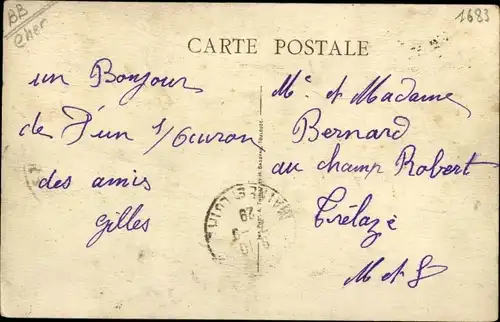 BB
Cher
1683
CARTE POSTALE
un Bonjour
de
des amis
Gilles
Mr et Madame
Bernard
au champ Robert
Trélazé
M et L
28